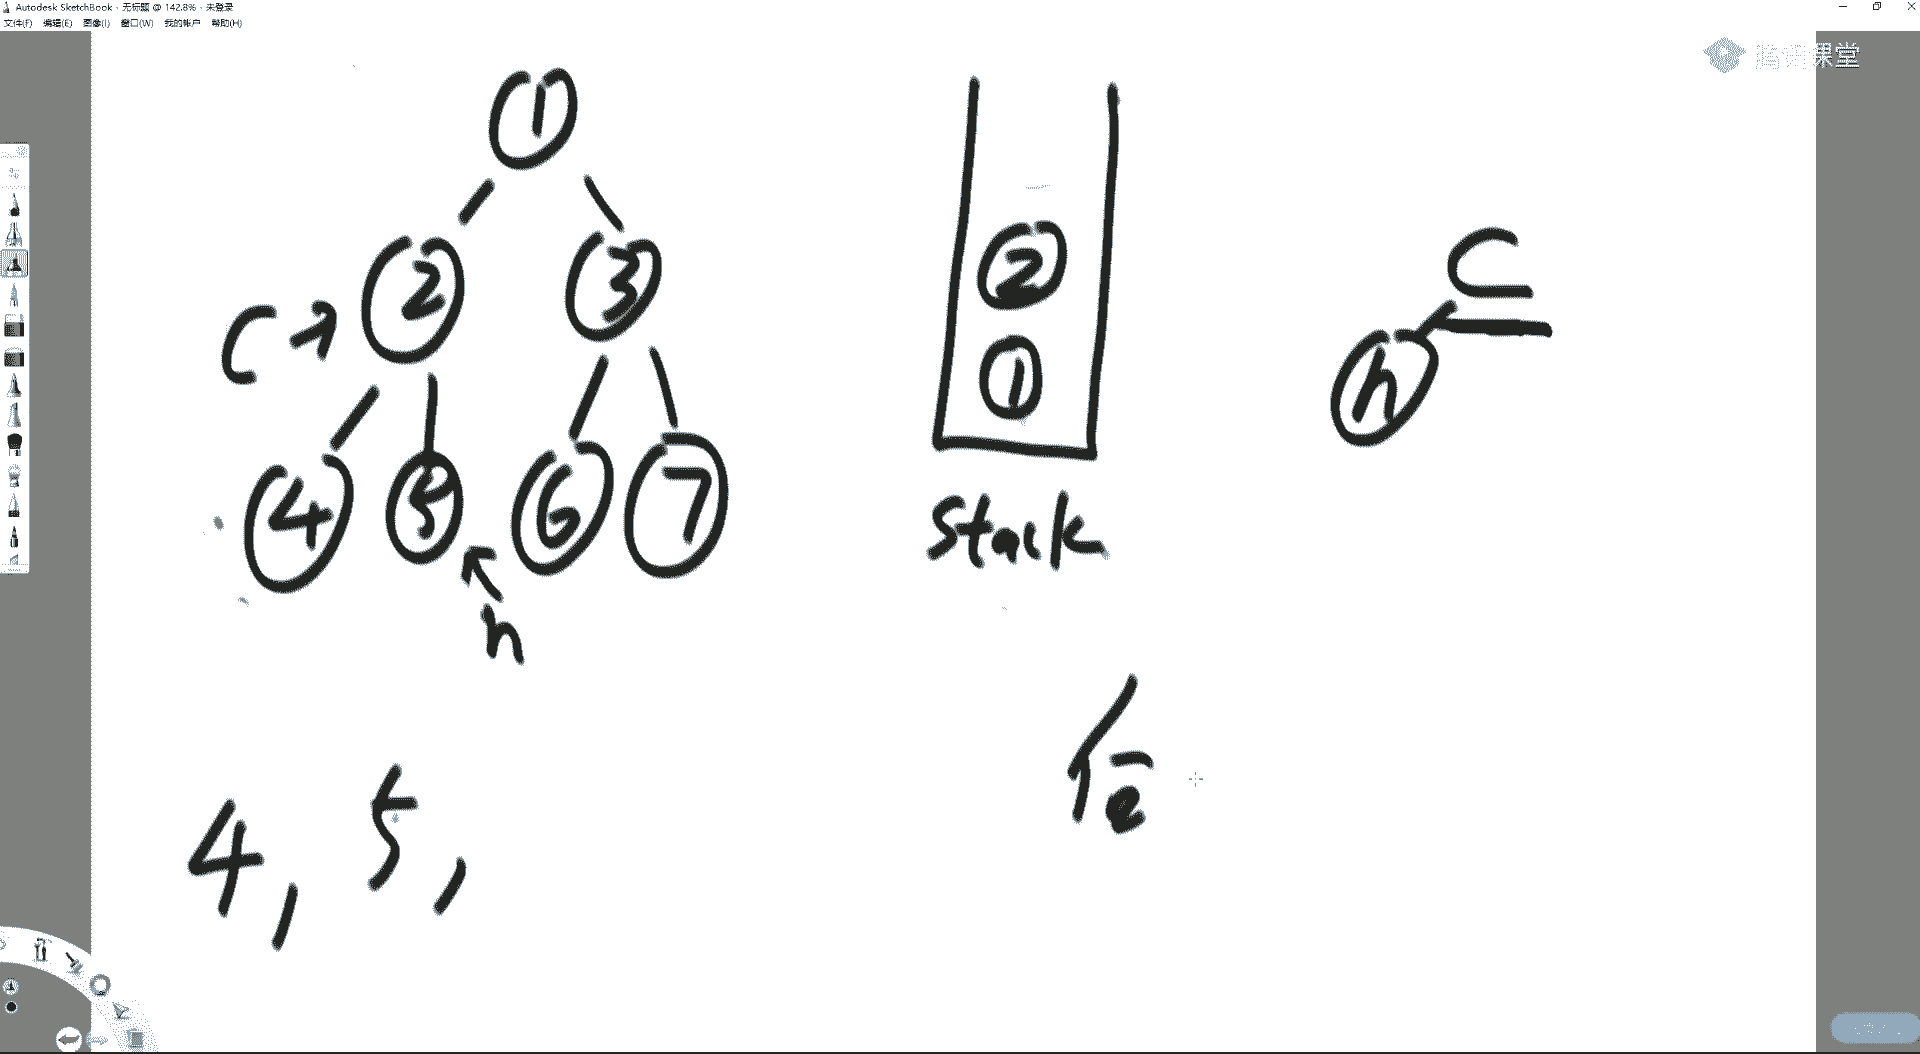 Autodesk SketchBook - 无标题 @ 142.8% - 未登录
文件(F) 编辑(E) 图像(I) 窗口(W) 我的帐户 帮助(H)
腾讯课堂
1
2 3
C
4 5 6 7
h
2
1
Stack
C
h
4, 5,